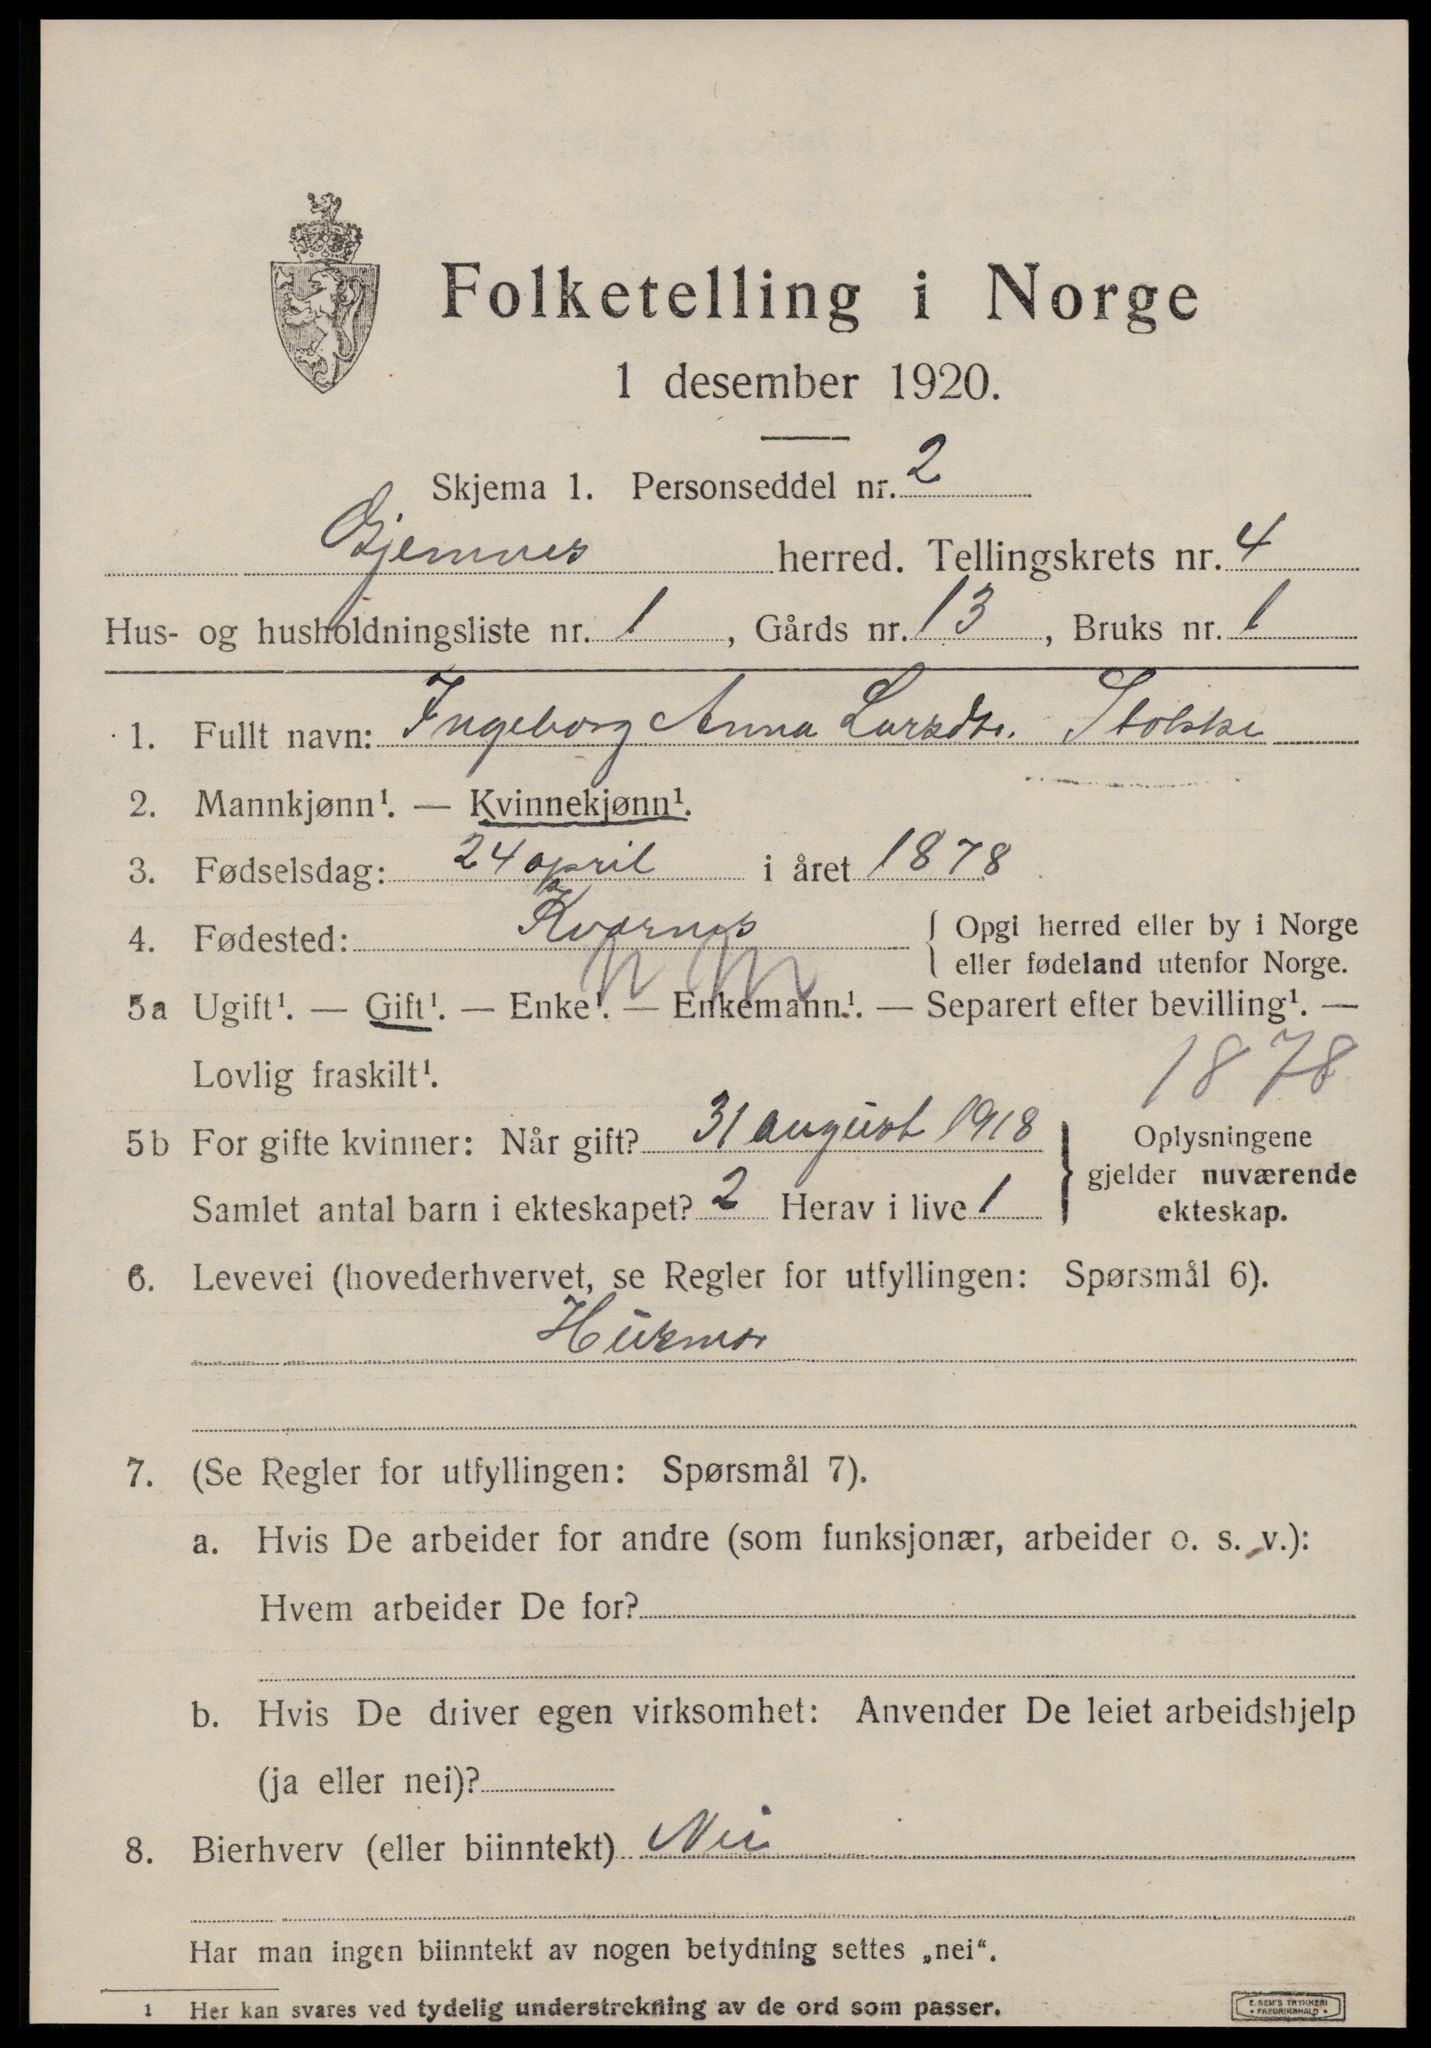 Folketelling i Norge
1 desember 1920.
Skjema 1. Personseddel nr. 2
Gjemnes herred. Tellingskrets nr. 4
Hus- og husholdningsliste nr. 1, Gårds nr. 13, Bruks nr. 1
1. Fullt navn: Ingeborg Anna Larsdtr. Stokke
2. Mannkjønn¹. — Kvinnekjønn¹.
3. Fødselsdag: 24 april i året 1878
4. Fødested: Kvernes { Opgi herred eller by i Norge
eller fødeland utenfor Norge.
5a Ugift¹. — Gift¹. — Enke¹. — Enkemann¹. — Separert efter bevilling¹. —
Lovlig fraskilt¹. 1878
5b For gifte kvinner: Når gift? 31 august 1918
Samlet antal barn i ekteskapet? 2 Herav i live 1
} Oplysningene
gjelder nuværende
ekteskap.
6. Levevei (hovederhvervet, se Regler for utfyllingen: Spørsmål 6).
Husmor
7. (Se Regler for utfyllingen: Spørsmål 7).
a. Hvis De arbeider for andre (som funksjonær, arbeider o. s. v.):
Hvem arbeider De for?
b. Hvis De driver egen virksomhet: Anvender De leiet arbeidshjelp
(ja eller nei)?
8. Bierhverv (eller biinntekt) Nei
Har man ingen biinntekt av nogen betydning settes „nei“.
1 Her kan svares ved tydelig understrekning av de ord som passer.
E. SEM'S TRYKKERI
• FREDRIKSHALD •